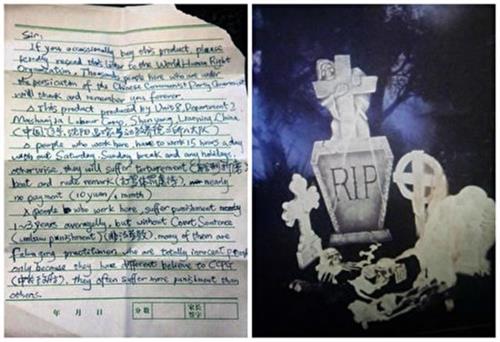 Sir:
If you occassionally buy this product, please
kindly resend this letter to the World Human Right
Organization. Thousands people here who are under
the persicution of the Chinese Communist Party Government
will thank and remember you forever.
This product produced by Unit 8, Department 2,
Mashanjia Labour Camp, Shen Yang, Liaoning, China
(中国,
people who work here, have to work 15 hours a day
with out Saturday, Sunday break and any holidays,
otherwise, they will suffer torturement
beat and rude remark nearly
no payment (10 yuan / month)
people who work here, suffer punishment nearly
1~3 years averagelly, but without Court Sentence
(unlaw punishment) many of them are
Falun gong practitioner, who are totally innocent people
only because they have different believe to CCPG
they often suffer more punishment than
others.
年 月 日 分数 家长签字
RIP